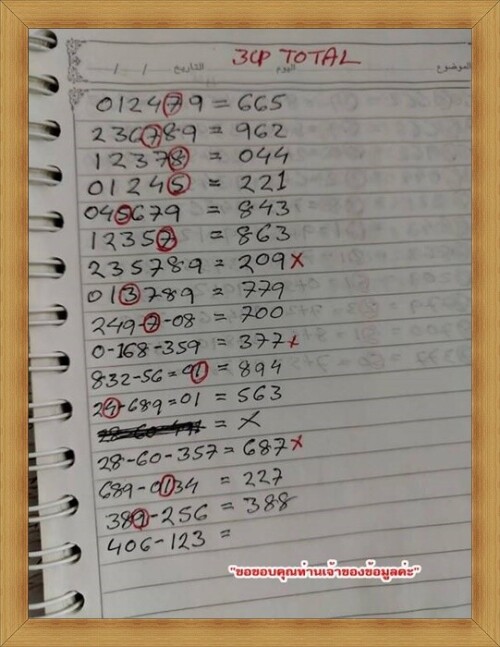 3UP TOTAL
الموضوع اليوم التاريخ / /
012479 = 665
236789 = 962
12378 = 044
01245 = 221
045679 = 843
12357 = 863
235789 = 209 x
013789 = 779
249-7-08 = 700
0-168-359 = 377 x
832-56=01 = 894
24-689=01 = 563
= X
28-60-357 = 687 x
689-0134 = 227
389-256 = 388
406-123 =
"ขอขอบคุณท่านเจ้าของข้อมูลค่ะ"